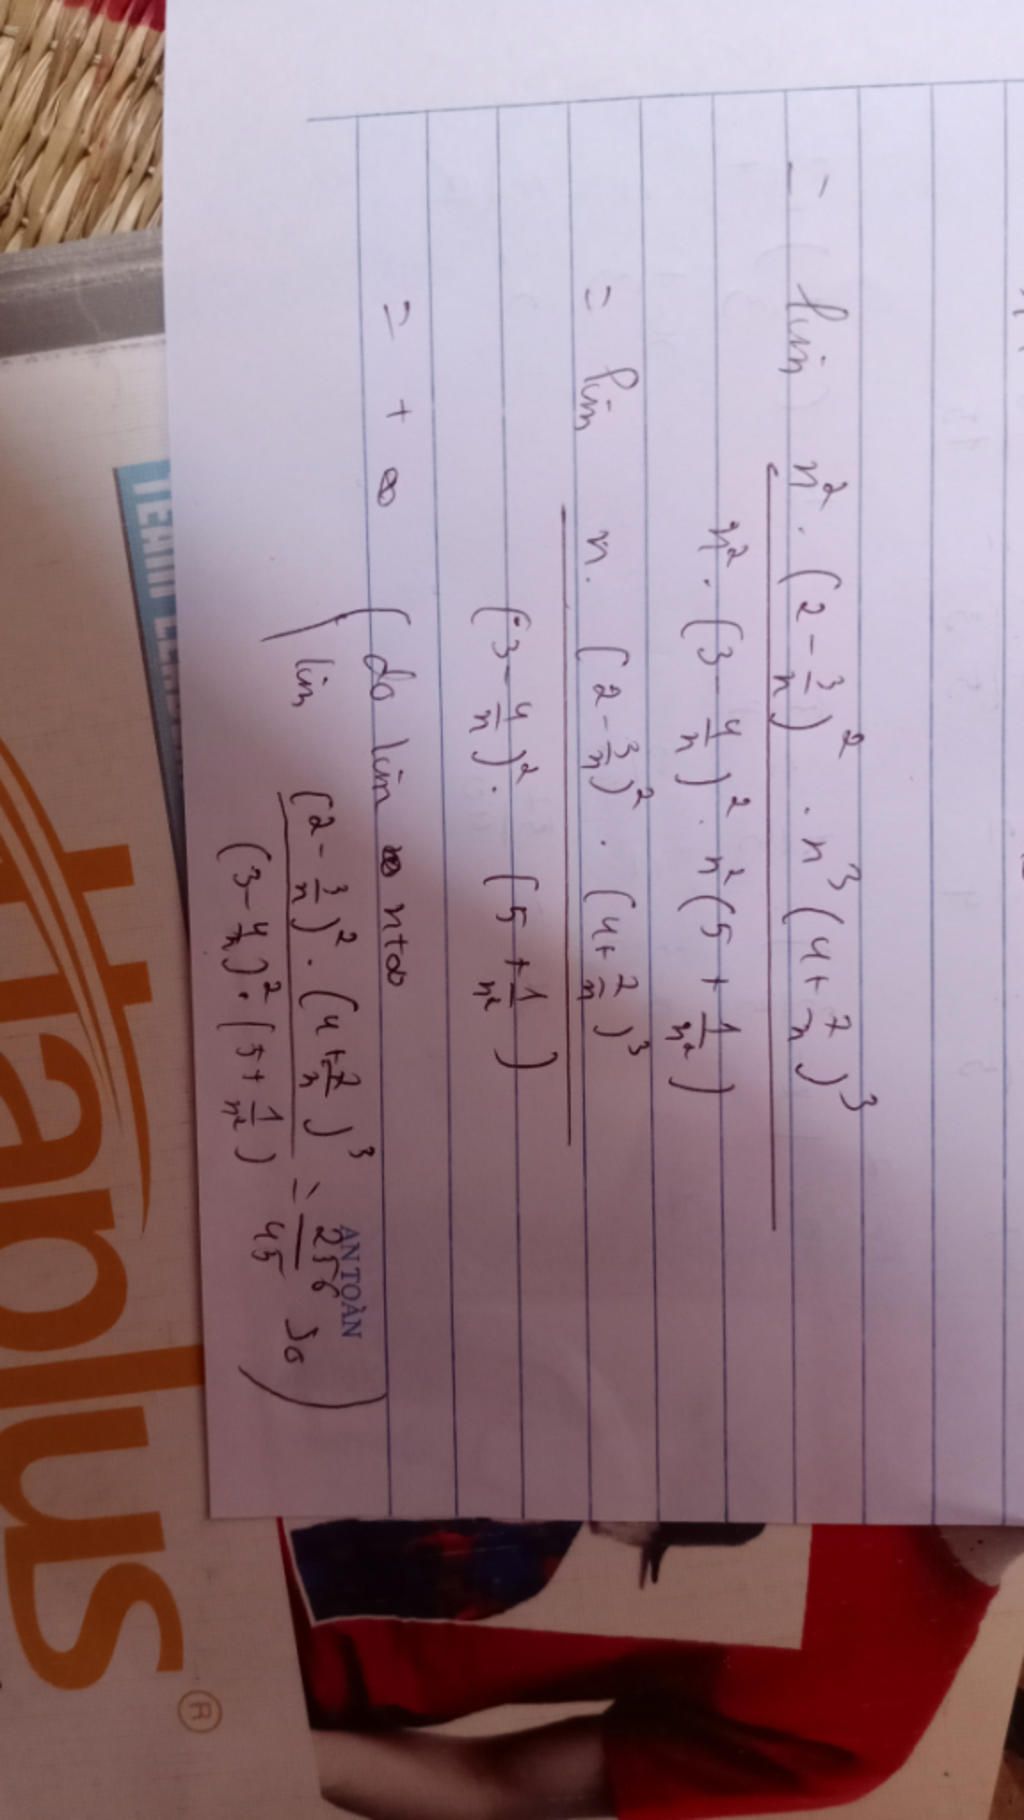 = lim n² . (2 - 3/n)² . n³ (4 + 7/n)³
n² . (3 - 4/n)² . n² (5 + 1/n²)
= lim n . (2 - 3/n)² . (4 + 7/n)³
(3 - 4/n)² . (5 + 1/n²)
= + ∞ (do lim n + ∞
lim (2 - 3/n)² . (4 + 7/n)³ = 256
(3 - 4/n)² . (5 + 1/n²) 45
AN TOÀN
TEAM
plus
®